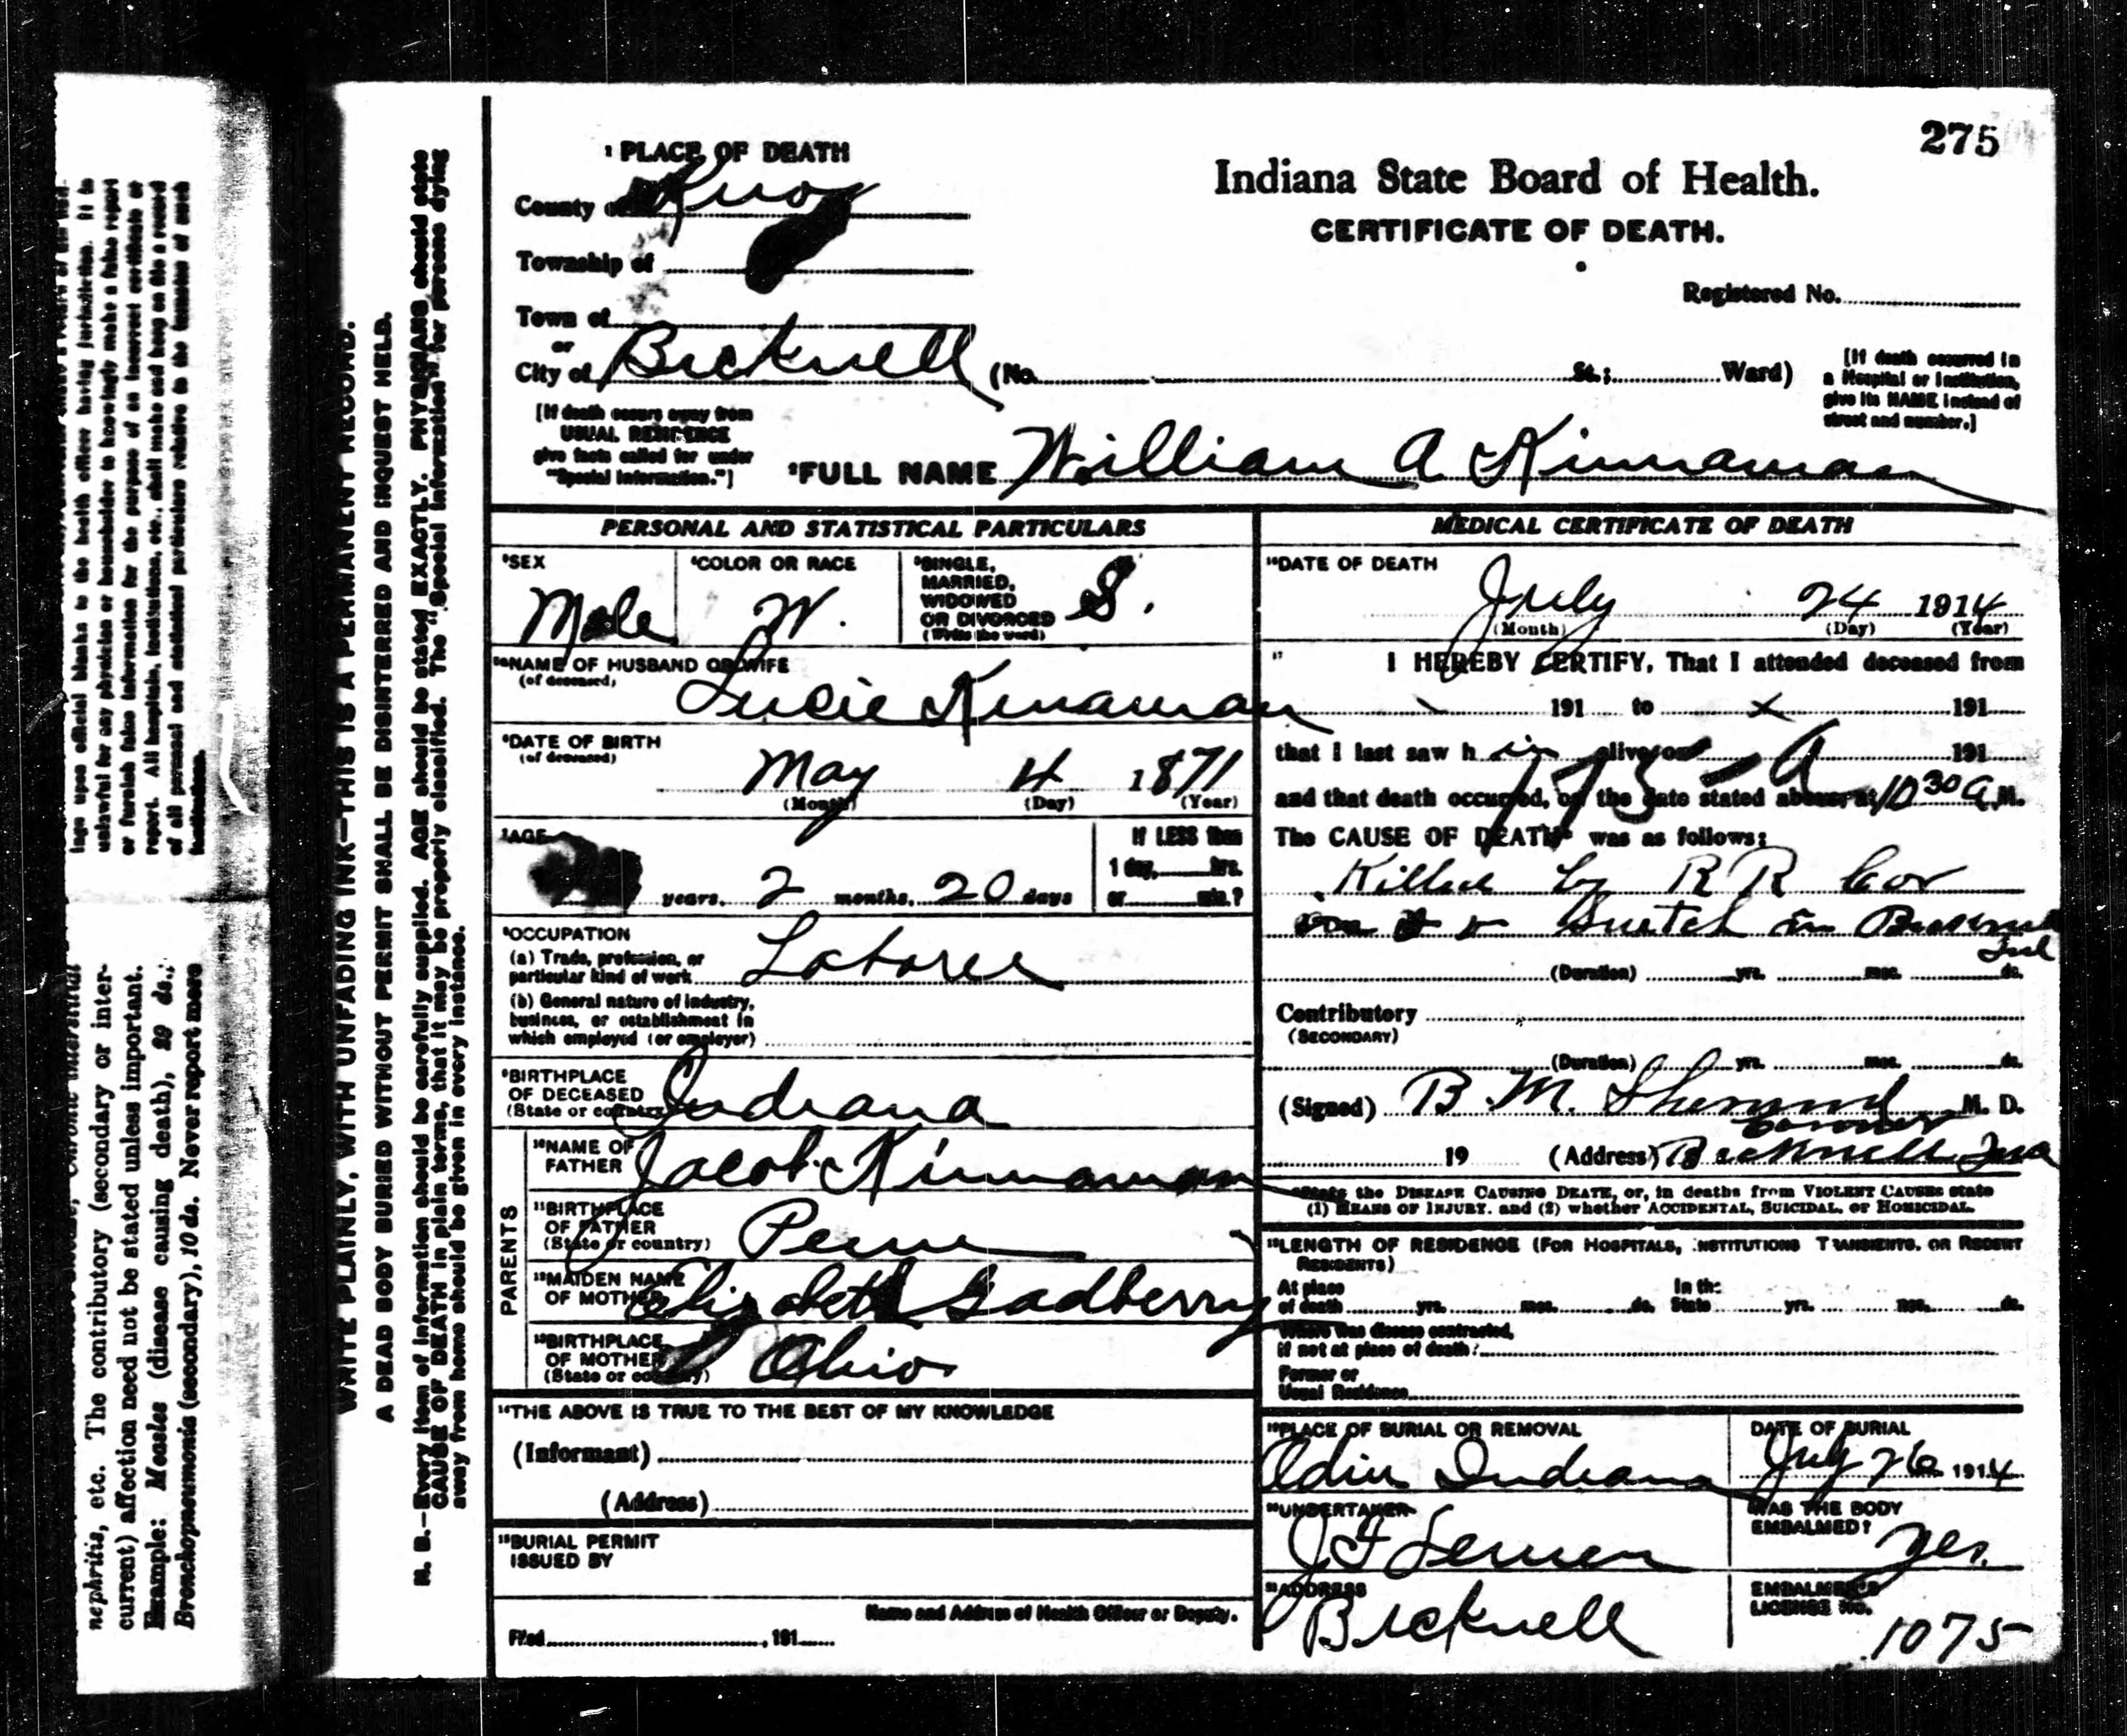 275
1 PLACE OF DEATH
Indiana State Board of Health.
CERTIFICATE OF DEATH.
County of Knox
Township of
Registered No.
Town of
or
City of Bicknell (No. St.; Ward)
[If death occurred in
a Hospital or Institution,
give its NAME instead of
street and number.]
[If death occurs away from
USUAL RESIDENCE
give facts called for under
"Special Information."]
2FULL NAME William A Kinnaman
PERSONAL AND STATISTICAL PARTICULARS
3SEX
Male
4COLOR OR RACE
W.
5SINGLE,
MARRIED,
WIDOWED
OR DIVORCED
(Write the word)
S.
NAME OF HUSBAND OR WIFE
(of deceased)
Lucie Kinaman
6DATE OF BIRTH
(of deceased)
May 4 1871
(Month) (Day) (Year)
7AGE
years, 2 months, 20 days
If LESS than
1 day, hrs.
or min.?
8OCCUPATION
(a) Trade, profession, or
particular kind of work Laborer
(b) General nature of industry,
business, or establishment in
which employed (or employer)
9BIRTHPLACE
OF DECEASED
(State or country)
Indiana
PARENTS
10NAME OF
FATHER
Jacob Kinnaman
11BIRTHPLACE
OF FATHER
(State or country)
Penn
12MAIDEN NAME
OF MOTHER
Elizabeth Gadberry
13BIRTHPLACE
OF MOTHER
(State or country)
Ohio
14THE ABOVE IS TRUE TO THE BEST OF MY KNOWLEDGE
(Informant)
(Address)
15BURIAL PERMIT
ISSUED BY
Name and Address of Health Officer or Deputy.
Filed , 191
MEDICAL CERTIFICATE OF DEATH
16DATE OF DEATH
July 24 1914
(Month) (Day) (Year)
17 I HEREBY CERTIFY, That I attended deceased from
191 to x 191
that I last saw h im alive on 191
175 - A
and that death occurred, on the date stated above, at 10 30 A M.
The CAUSE OF DEATH* was as follows:
Killed by R R Car
on Switch in Bicknell
Ind
(Duration) yrs. mos. ds.
Contributory
(SECONDARY)
(Duration) yrs. mos. ds.
(Signed) B. M. M. D.
Coroner
19 (Address) Bicknell Ind
*State the DISEASE CAUSING DEATH, or, in deaths from VIOLENT CAUSES state
(1) MEANS OF INJURY. and (2) whether ACCIDENTAL, SUICIDAL, or HOMICIDAL.
18LENGTH OF RESIDENCE (FOR HOSPITALS, INSTITUTIONS TRANSIENTS, OR RECENT
RESIDENTS)
At place
of death yrs. mos. ds.
In the
State yrs. mos. ds.
Where was disease contracted,
if not at place of death?
Former or
Usual Residence
19PLACE OF BURIAL OR REMOVAL
Odin Indiana
DATE OF BURIAL
July 26 1914
20UNDERTAKER
WAS THE BODY
EMBALMED?
Yes.
ADDRESS
Bicknell
EMBALMER'S
LICENSE NO.
1075
WRITE PLAINLY, WITH UNFADING INK—THIS IS A PERMANENT RECORD.
A DEAD BODY BURIED WITHOUT PERMIT SHALL BE DISINTERRED AND INQUEST HELD.
N. B.—Every item of information should be carefully supplied. AGE should be stated EXACTLY. PHYSICIANS should state
CAUSE OF DEATH in plain terms, that it may be properly classified. The "Special Information" for persons dying
away from home should be given in every instance.
lags upon official blanks to the health officer having jurisdiction. It is
unlawful for any physician or householder to knowingly make a false report
or furnish false information for the purpose of an incorrect certificate or
report. All hospitals, institutions, etc., shall make and keep on file a record
of all personal and statistical particulars relative to the inmates of such
institutions.
nephritis, etc. The contributory (secondary or inter-
current) affection need not be stated unless important.
Example: Measles (disease causing death), 29 ds.;
Bronchopneumonia (secondary), 10 ds. Never report mere